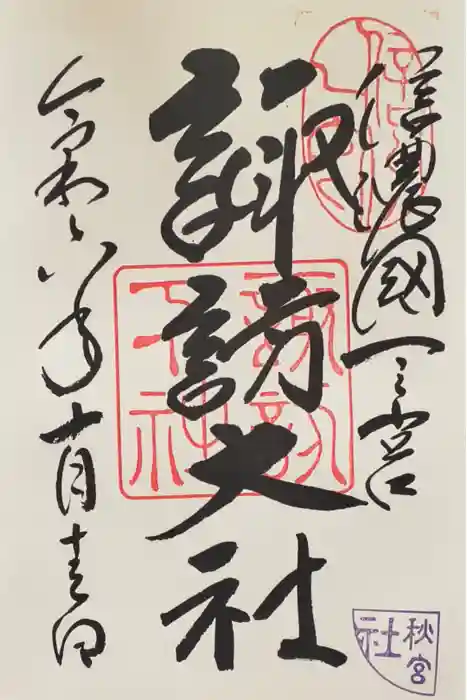 信濃國一之宮
諏訪大社
令和六年十月十三日
諏訪
下社
秋宮
社